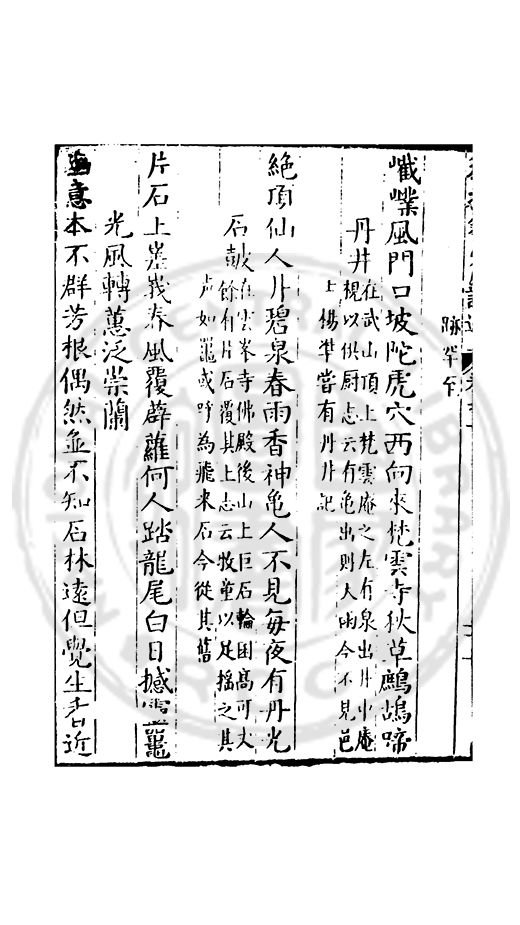 巇嶪風門口坡陀虎穴西向來梵雲寺秋草鷓鴣啼
丹井
在武山頂上梵雲庵之左有泉出井中庵
視以供厨志云有亀出則大雨今不見邑
上楊準嘗有丹井記
絶頂仙人井碧泉春雨香神亀人不見每夜有丹光
石鼓
在雲峯寺佛殿後山上巨石輪囷髙可丈
餘有片石覆其上志云牧童以足揺之其
声如鼉或呼為飛来石今從其舊
片石上峯峩春風覆薜蘿何人踏龍尾白日撼靈鼉
光風轉蕙泛崇蘭
意本不群芳根偶然並不知石林遠但覺生香近